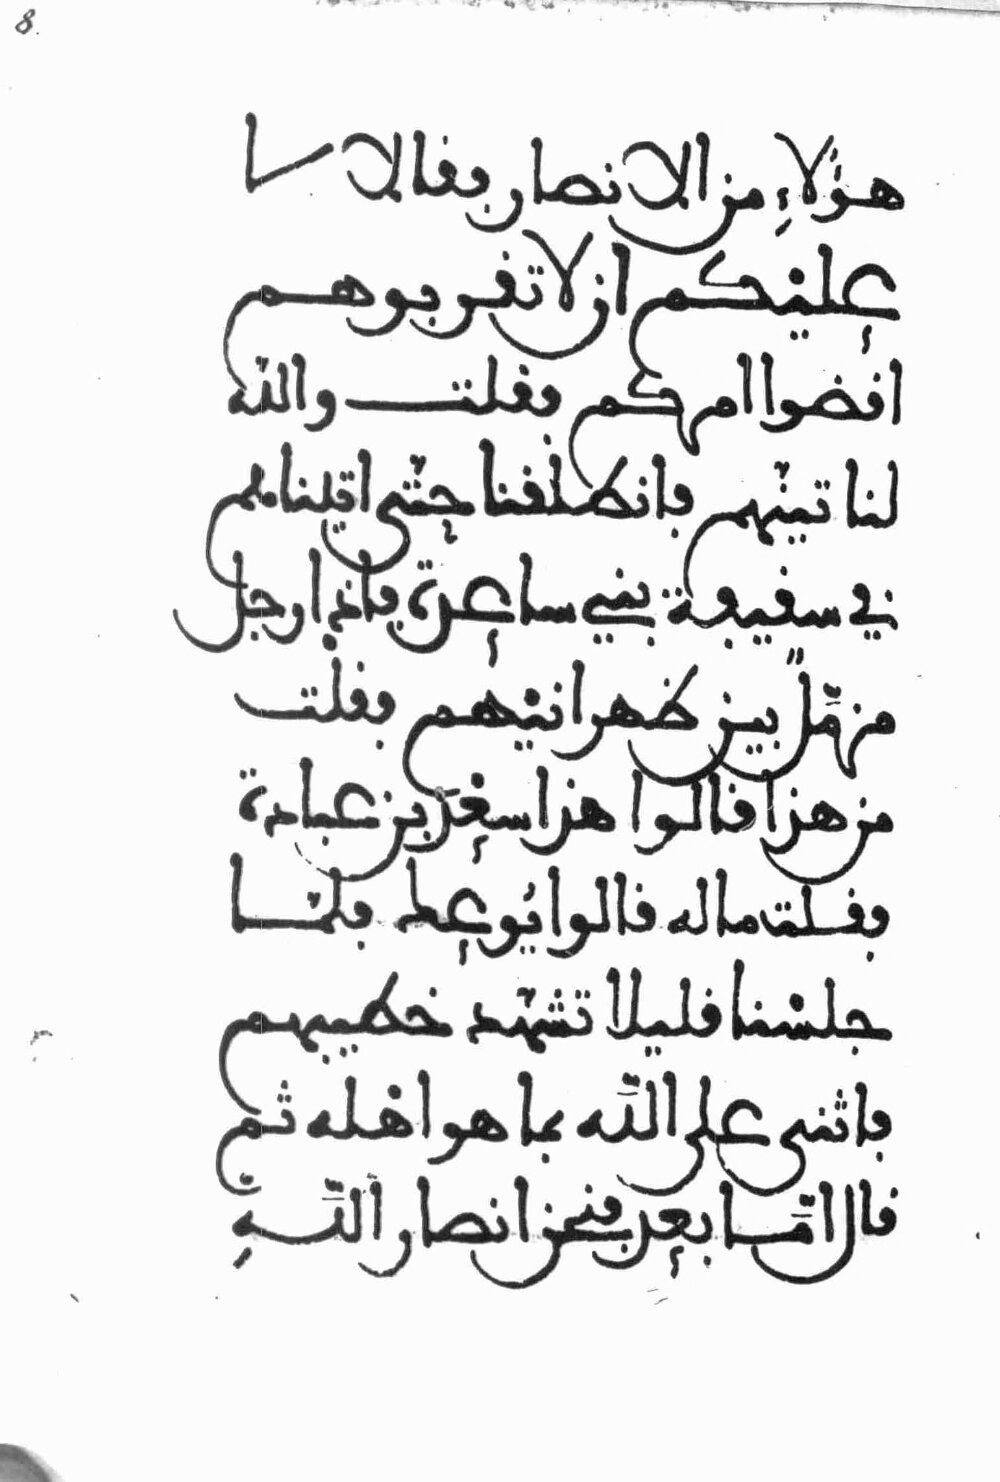 8.
هؤلاء من الانصار فقالا لا
عليكم ان لا تقربوهم
اقضوا امركم فقلت والله
لناتينهم فانطلقنا حتى اتيناهم
في سقيفة بني ساعدة فاذا رجل
مزمل بين ظهرانيهم فقلت
من هذا قالوا هذا سعد بن عبادة
فقلت ماله قالوا يوعك فلما
جلسنا قليلا تشهد خطيبهم
فاثنى على الله بما هو اهله ثم
قال اما بعد فنحن انصار الله